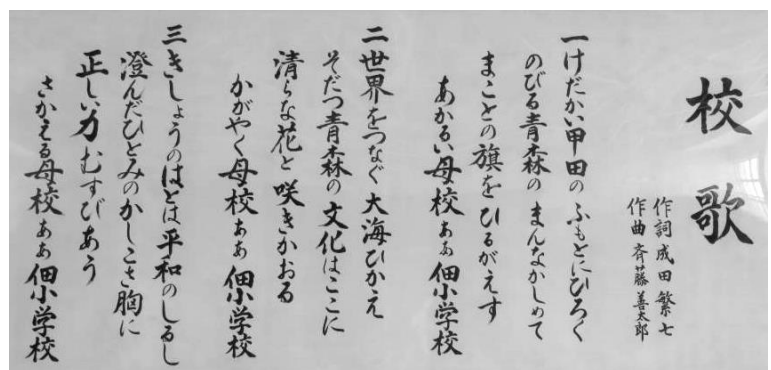 校歌
作詞 成田繁七
作曲 斉藤善太郎
一 けだかい甲田の ふもとにひろく
のびる青森の まんなかしめて
まことの旗を ひるがえす
あかるい母校 ああ 佃小学校
二 世界をつなぐ 大海ひかえ
そだつ青森の 文化はここに
清らな花と 咲きかおる
かがやく母校 ああ 佃小学校
三 きしょうのはとは 平和のしるし
澄んだひとみの かしこさ胸に
正しい力 むすびあう
さかえる母校 ああ 佃小学校